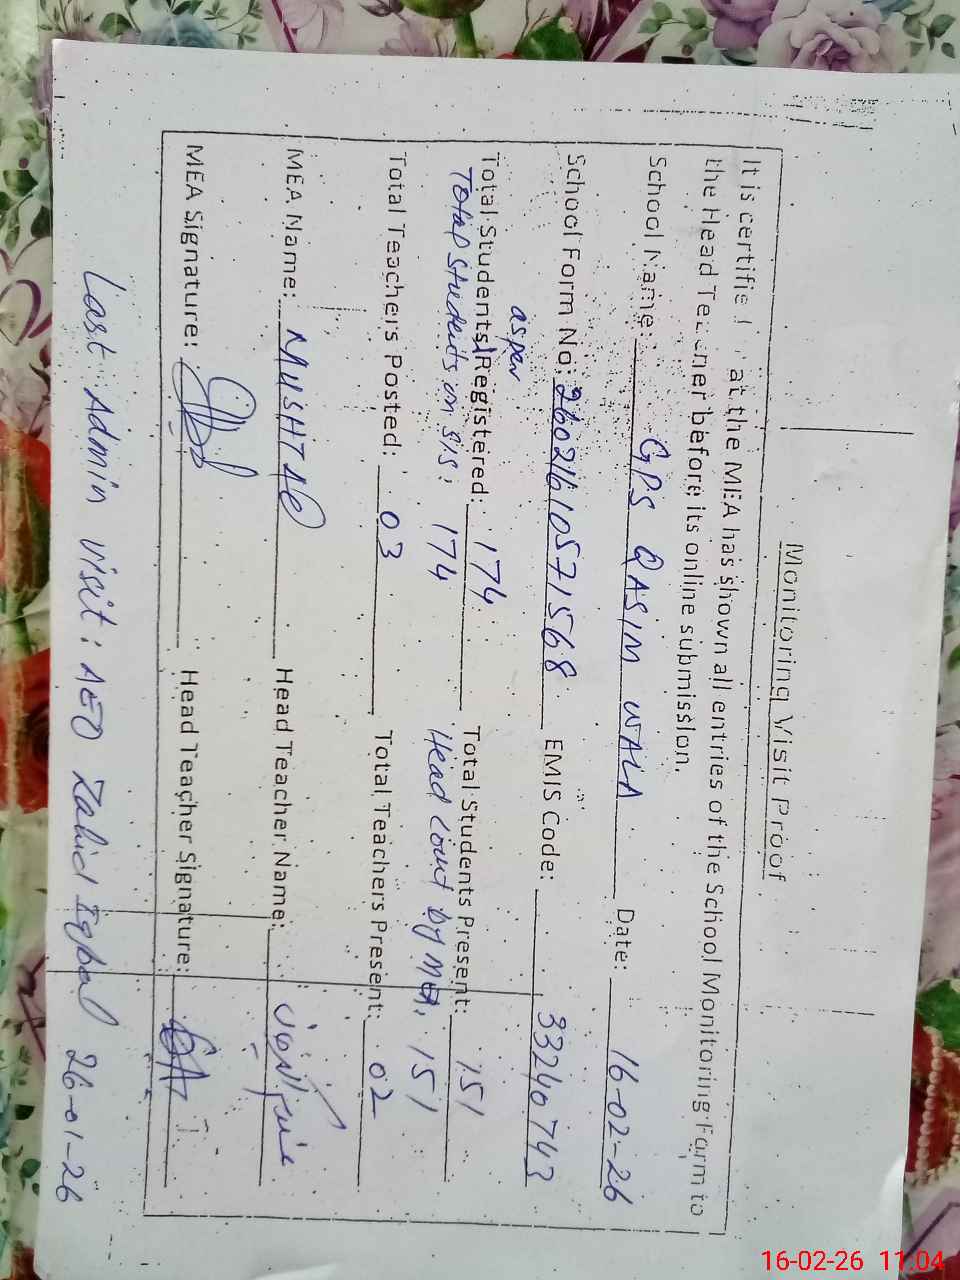 Monitoring Visit Proof
It is certified that the MEA has shown all entries of the School Monitoring Form to
the Head Teacher before its online submission.
School Name: GPS QASIM WALA Date: 16-02-26
School Form No: 26021610571568 EMIS Code: 33240743
as per
Total Students Registered: 174 Total Students Present: 151
Total students on SIS: 174 Head count by MEA: 151
Total Teachers Posted: 03 Total Teachers Present: 02
MEA Name: MUSHTAQ Head Teacher Name:
MEA Signature: Head Teacher Signature:
Last Admin visit: AEO Zahid Iqbal 26-01-26
16-02-26 11:04